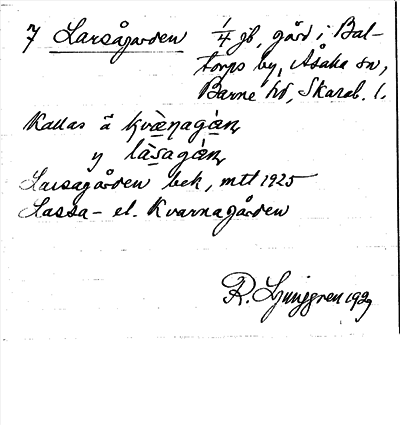 7 Larsågården 1/4 jb, gård i Bal-
torps by, Åsaka sn,
Barne hd, Skarab. l.
Kallas ä kvæ̀ṇagàṇ,
y làsagàṇ,
Larsagården bek, mtt 1925
Lassa- el. Kvarnagården
R. Ljunggren 1929